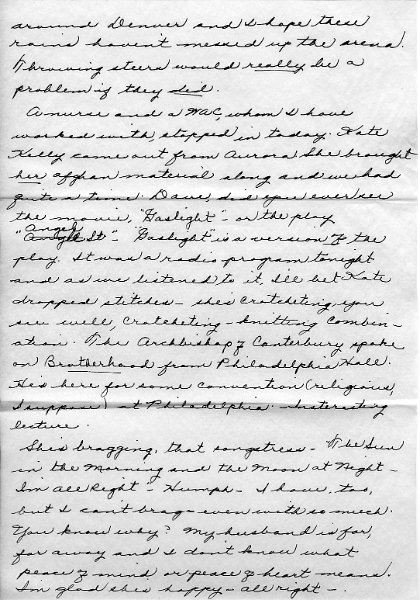 around Denver and I hope these
rains haven't messed up the arena.
Throwing steers would really be a
problem if they did.
A nurse and a WAC, whom I have
worked with, stopped in today. Kate
Kelly came out from Aurora. She brought
her afghan material along and we had
quite a time! Dave, did you ever see
the movie, "Gaslight" - or the play
"Angel St" - "Gaslight" is a version of the
play. It was a radio program tonight
and as we listened to it, I'll bet Kate
dropped stitches - she's cratcheting - you
see well, cratcheting - knitting combin-
ation. The Archbishop of Canterbury spoke
on Brotherhood from Philadelphia Hall.
He's here for some convention (religious,
I suppose) at Philadelphia. Interesting
lecture.
She's bragging, that songstress - The Sun
in the Morning and the Moon at Night -
I'm all Right - Humph - I have, too,
but I can't brag - even with so much.
You know why? My husband is far,
far away and I don't know what
peace of mind or peace of heart means.
I'm glad she's happy - all right -.